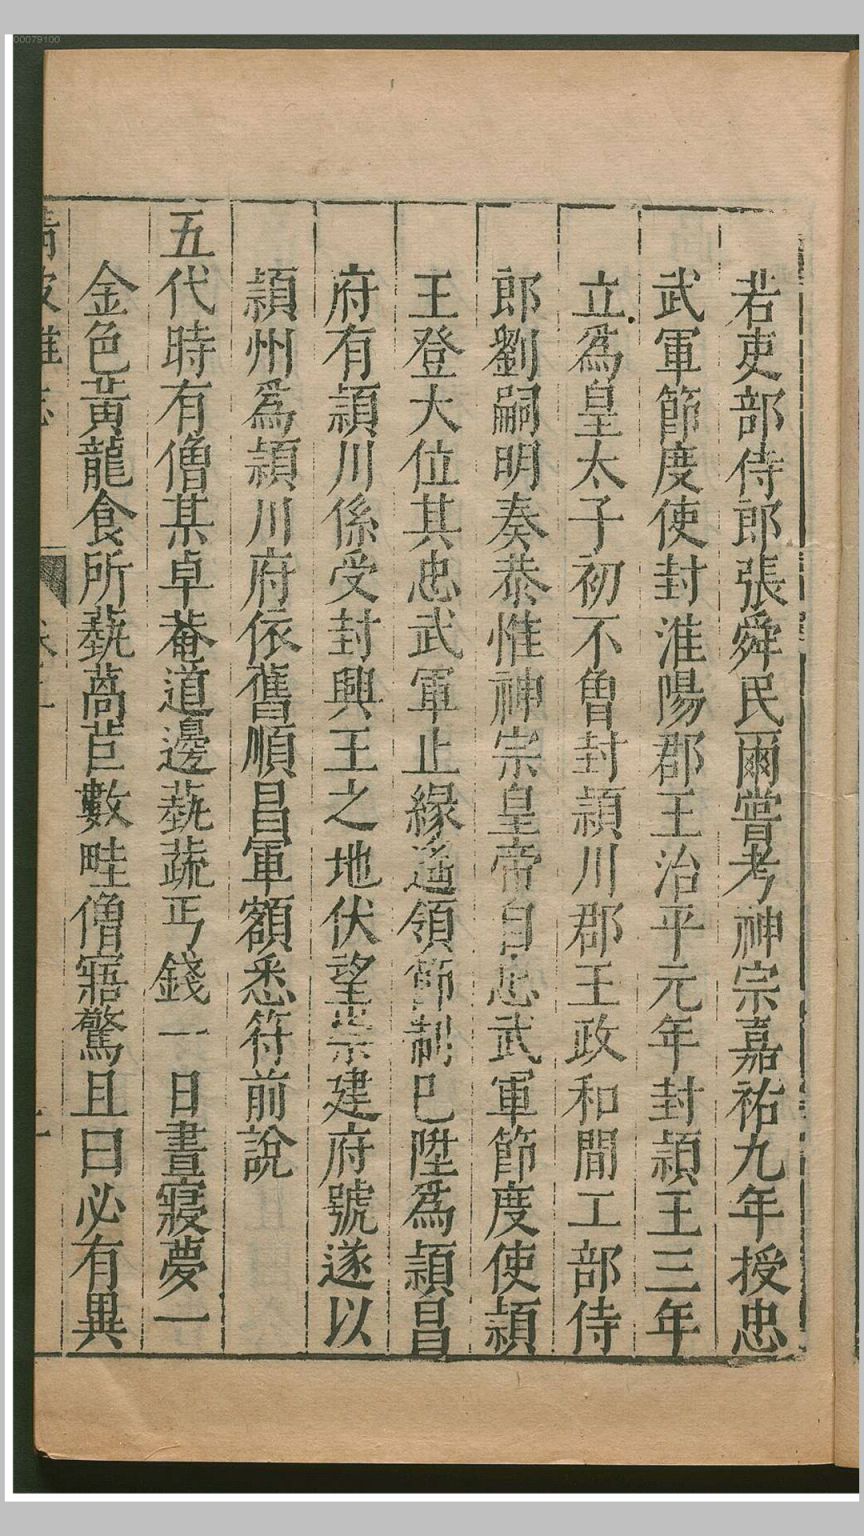 若吏部侍郎張舜民爾嘗考神宗嘉祐九年授忠
武軍節度使封淮陽郡王治平元年封頴王三年
立爲皇太子初不曾封頴川郡王政和間工部侍
郎劉嗣明奏恭惟神宗皇帝自忠武軍節度使頴
王登大位其忠武軍止緣遙領節制已陞爲頴昌
府有頴川係受封興王之地伏望崇建府號遂以
頴州爲頴川府依舊順昌軍額悉符前說
五代時有僧某卓菴道邊蓺蔬丐錢一日晝寢夢一
金色黃龍食所蓺萵苣數畦僧寤驚且曰必有異
清波雜志
00079100